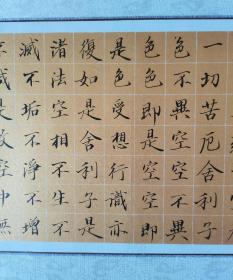 一切苦厄舍利子
色不異空空不異
色色即是空空即
是色受想行識亦
復如是舍利子是
諸法空相不生不
滅不垢不淨不增
不減是故空中無